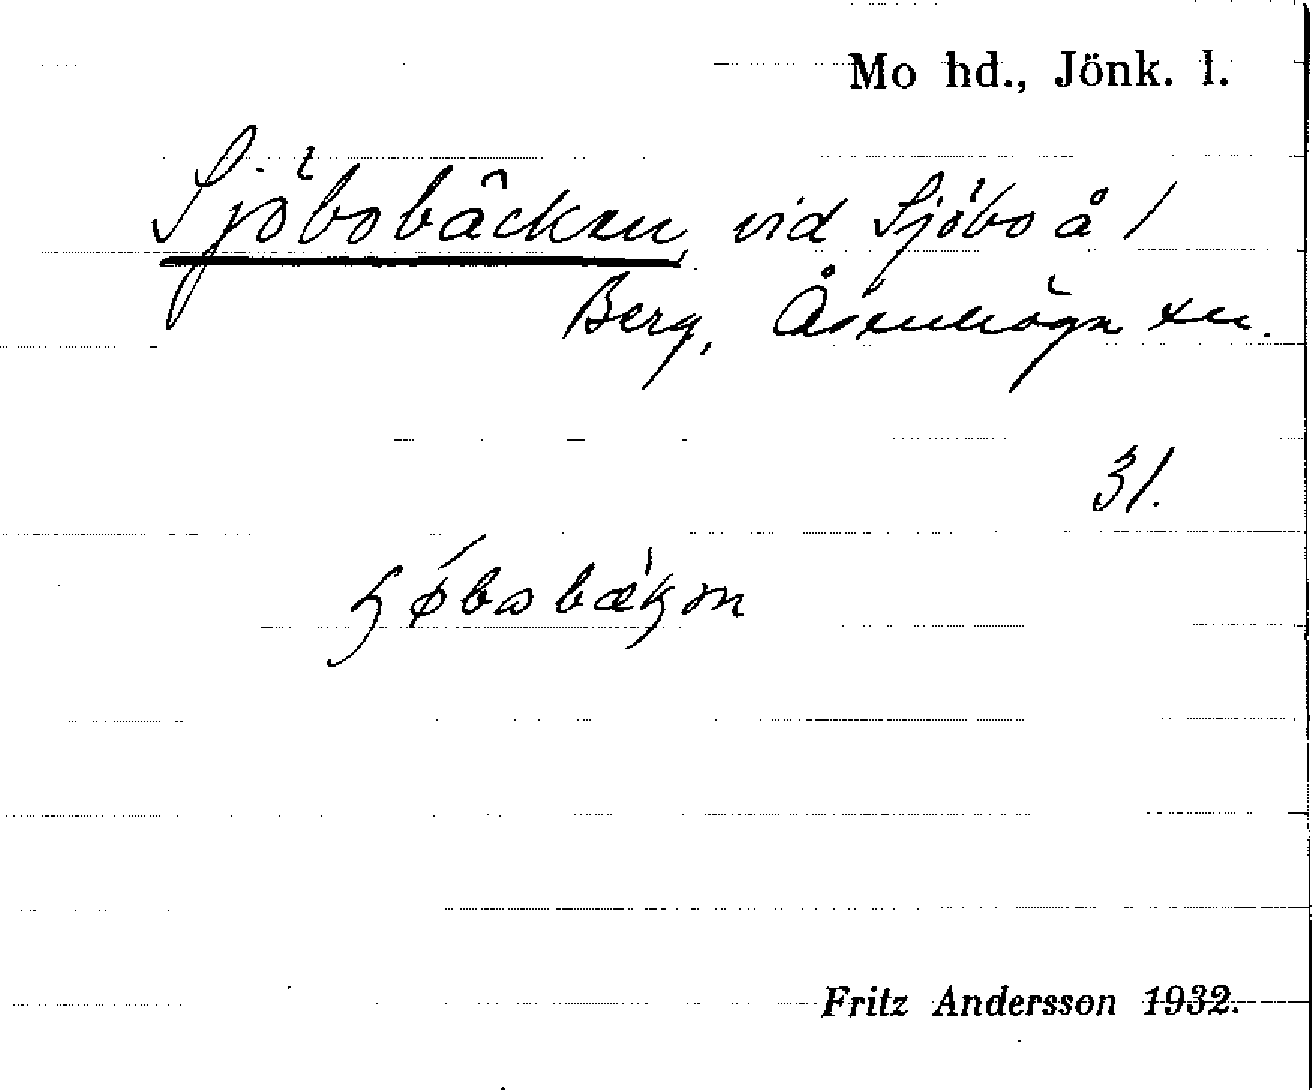 Mo hd., Jönk. l.
Sjöbobäcken vid Sjöbo å /
Berg, Åsenhöga sn.
31.
Fritz Andersson 1932.